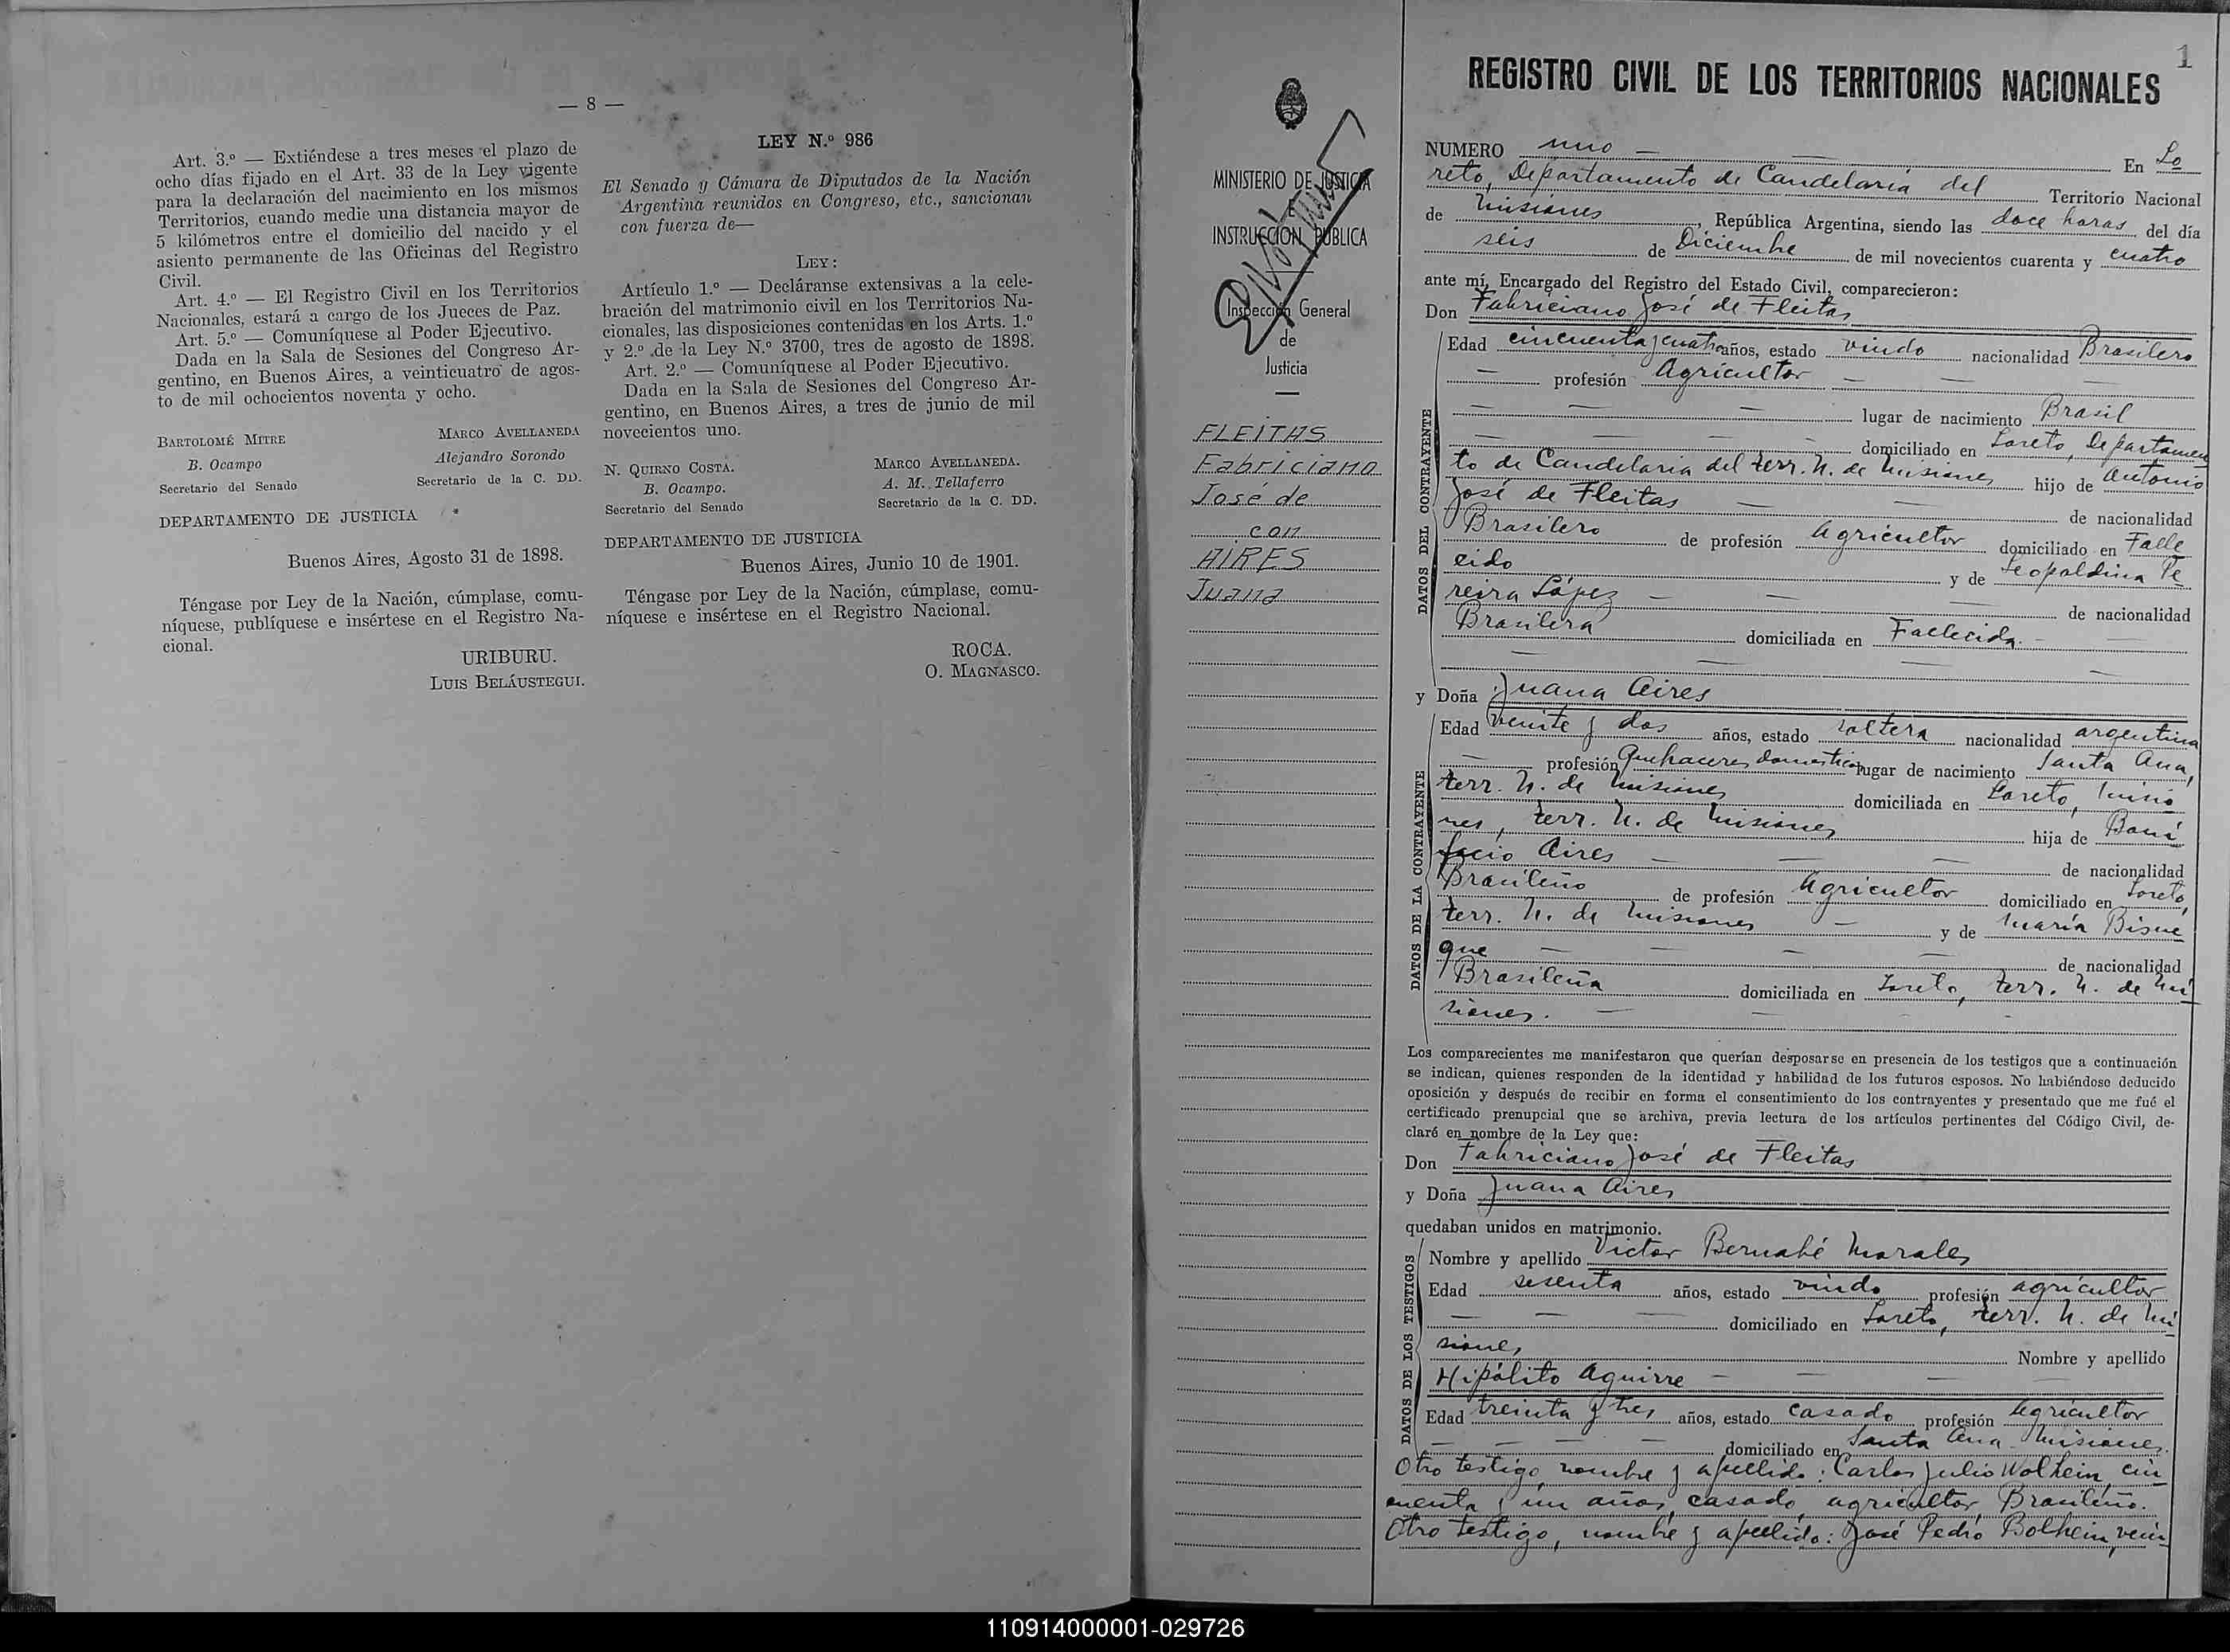 — 8 —
Art. 3.º — Extiéndese a tres meses el plazo de
ocho días fijado en el Art. 33 de la Ley vigente
para la declaración del nacimiento en los mismos
Territorios, cuando medie una distancia mayor de
5 kilómetros entre el domicilio del nacido y el
asiento permanente de las Oficinas del Registro
Civil.
Art. 4.º — El Registro Civil en los Territorios
Nacionales, estará a cargo de los Jueces de Paz.
Art. 5.º — Comuníquese al Poder Ejecutivo.
Dada en la Sala de Sesiones del Congreso Ar-
gentino, en Buenos Aires, a veinticuatro de agos-
to de mil ochocientos noventa y ocho.
BARTOLOMÉ MITRE MARCO AVELLANEDA
B. Ocampo Alejandro Sorondo
Secretario del Senado Secretario de la C. DD.
DEPARTAMENTO DE JUSTICIA
Buenos Aires, Agosto 31 de 1898.
Téngase por Ley de la Nación, cúmplase, comu-
níquese, publíquese e insértese en el Registro Na-
cional.
URIBURU.
LUIS BELÁUSTEGUI.
LEY N.º 986
El Senado y Cámara de Diputados de la Nación
Argentina reunidos en Congreso, etc., sancionan
con fuerza de—
LEY:
Artículo 1.º — Decláranse extensivas a la cele-
bración del matrimonio civil en los Territorios Na-
cionales, las disposiciones contenidas en los Arts. 1.º
y 2.º de la Ley N.º 3700, tres de agosto de 1898.
Art. 2.º — Comuníquese al Poder Ejecutivo.
Dada en la Sala de Sesiones del Congreso Ar-
gentino, en Buenos Aires, a tres de junio de mil
novecientos uno.
N. QUIRNO COSTA. MARCO AVELLANEDA.
B. Ocampo. A. M. Tellaferro
Secretario del Senado Secretario de la C. DD.
DEPARTAMENTO DE JUSTICIA
Buenos Aires, Junio 10 de 1901.
Téngase por Ley de la Nación, cúmplase, comu-
níquese e insértese en el Registro Nacional.
ROCA.
O. MAGNASCO.
MINISTERIO DE JUSTICIA
E
INSTRUCCION PUBLICA
Inspección General
de
Justicia
FLEITAS
Fabriciano
José de
con
AIRES
Juana
1
REGISTRO CIVIL DE LOS TERRITORIOS NACIONALES
NUMERO uno — — En Lo
reto, Departamento de Candelaria del Territorio Nacional
de Misiones, República Argentina, siendo las doce horas del día
seis de Diciembre de mil novecientos cuarenta y cuatro
ante mí, Encargado del Registro del Estado Civil, comparecieron:
Don Fabriciano José de Fleitas
DATOS DEL CONTRAYENTE
Edad cincuenta y cuatro años, estado viudo nacionalidad Brasilero
— profesión Agricultor — — —
— — — lugar de nacimiento Brasil
— — — — domiciliado en Loreto, Departamen
to de Candelaria del terr. N. de Misiones hijo de Antonio
José de Fleitas — — de nacionalidad
Brasilero de profesión Agricultor domiciliado en Falle
cido y de Leopoldina Pe
reira López — — — de nacionalidad
Brasilera domiciliada en Fallecida. — —
— — — —
y Doña Juana Aires
DATOS DE LA CONTRAYENTE
Edad veinte y dos años, estado soltera nacionalidad argentina
— profesión Quehaceres domesticos lugar de nacimiento Santa Ana,
terr. N. de Misiones domiciliada en Loreto, Misio
nes, terr. N. de Misiones hija de Boni
facio Aires — — — de nacionalidad
Brasileño de profesión Agricultor domiciliado en Loreto,
terr. N. de Misiones — y de María Bisne
que — — — — de nacionalidad
Brasileña domiciliada en Loreto, terr. N. de Mi
siones. — — -
Los comparecientes me manifestaron que querían desposarse en presencia de los testigos que a continuación
se indican, quienes responden de la identidad y habilidad de los futuros esposos. No habiéndose deducido
oposición y después de recibir en forma el consentimiento de los contrayentes y presentado que me fué el
certificado prenupcial que se archiva, previa lectura de los artículos pertinentes del Código Civil, de-
claré en nombre de la Ley que:
Don Fabriciano José de Fleitas
y Doña Juana Aires
quedaban unidos en matrimonio.
DATOS DE LOS TESTIGOS
Nombre y apellido Victor Bernabé Morales
Edad sesenta años, estado viudo profesión agricultor
— — — domiciliado en Loreto, terr. N. de Mi
siones Nombre y apellido
Hipólito Aguirre — — — —
Edad treinta y tres años, estado casado profesión Agricultor
— — — — domiciliado en Santa Ana Misiones.
Otro testigo, nombre y apellido: Carlos Julio Wolhein, cin
cuenta y un años, casado, agricultor, Brasileño.
Otro testigo, nombre y apellido: José Pedro Bolhein, vein
110914000001-029726